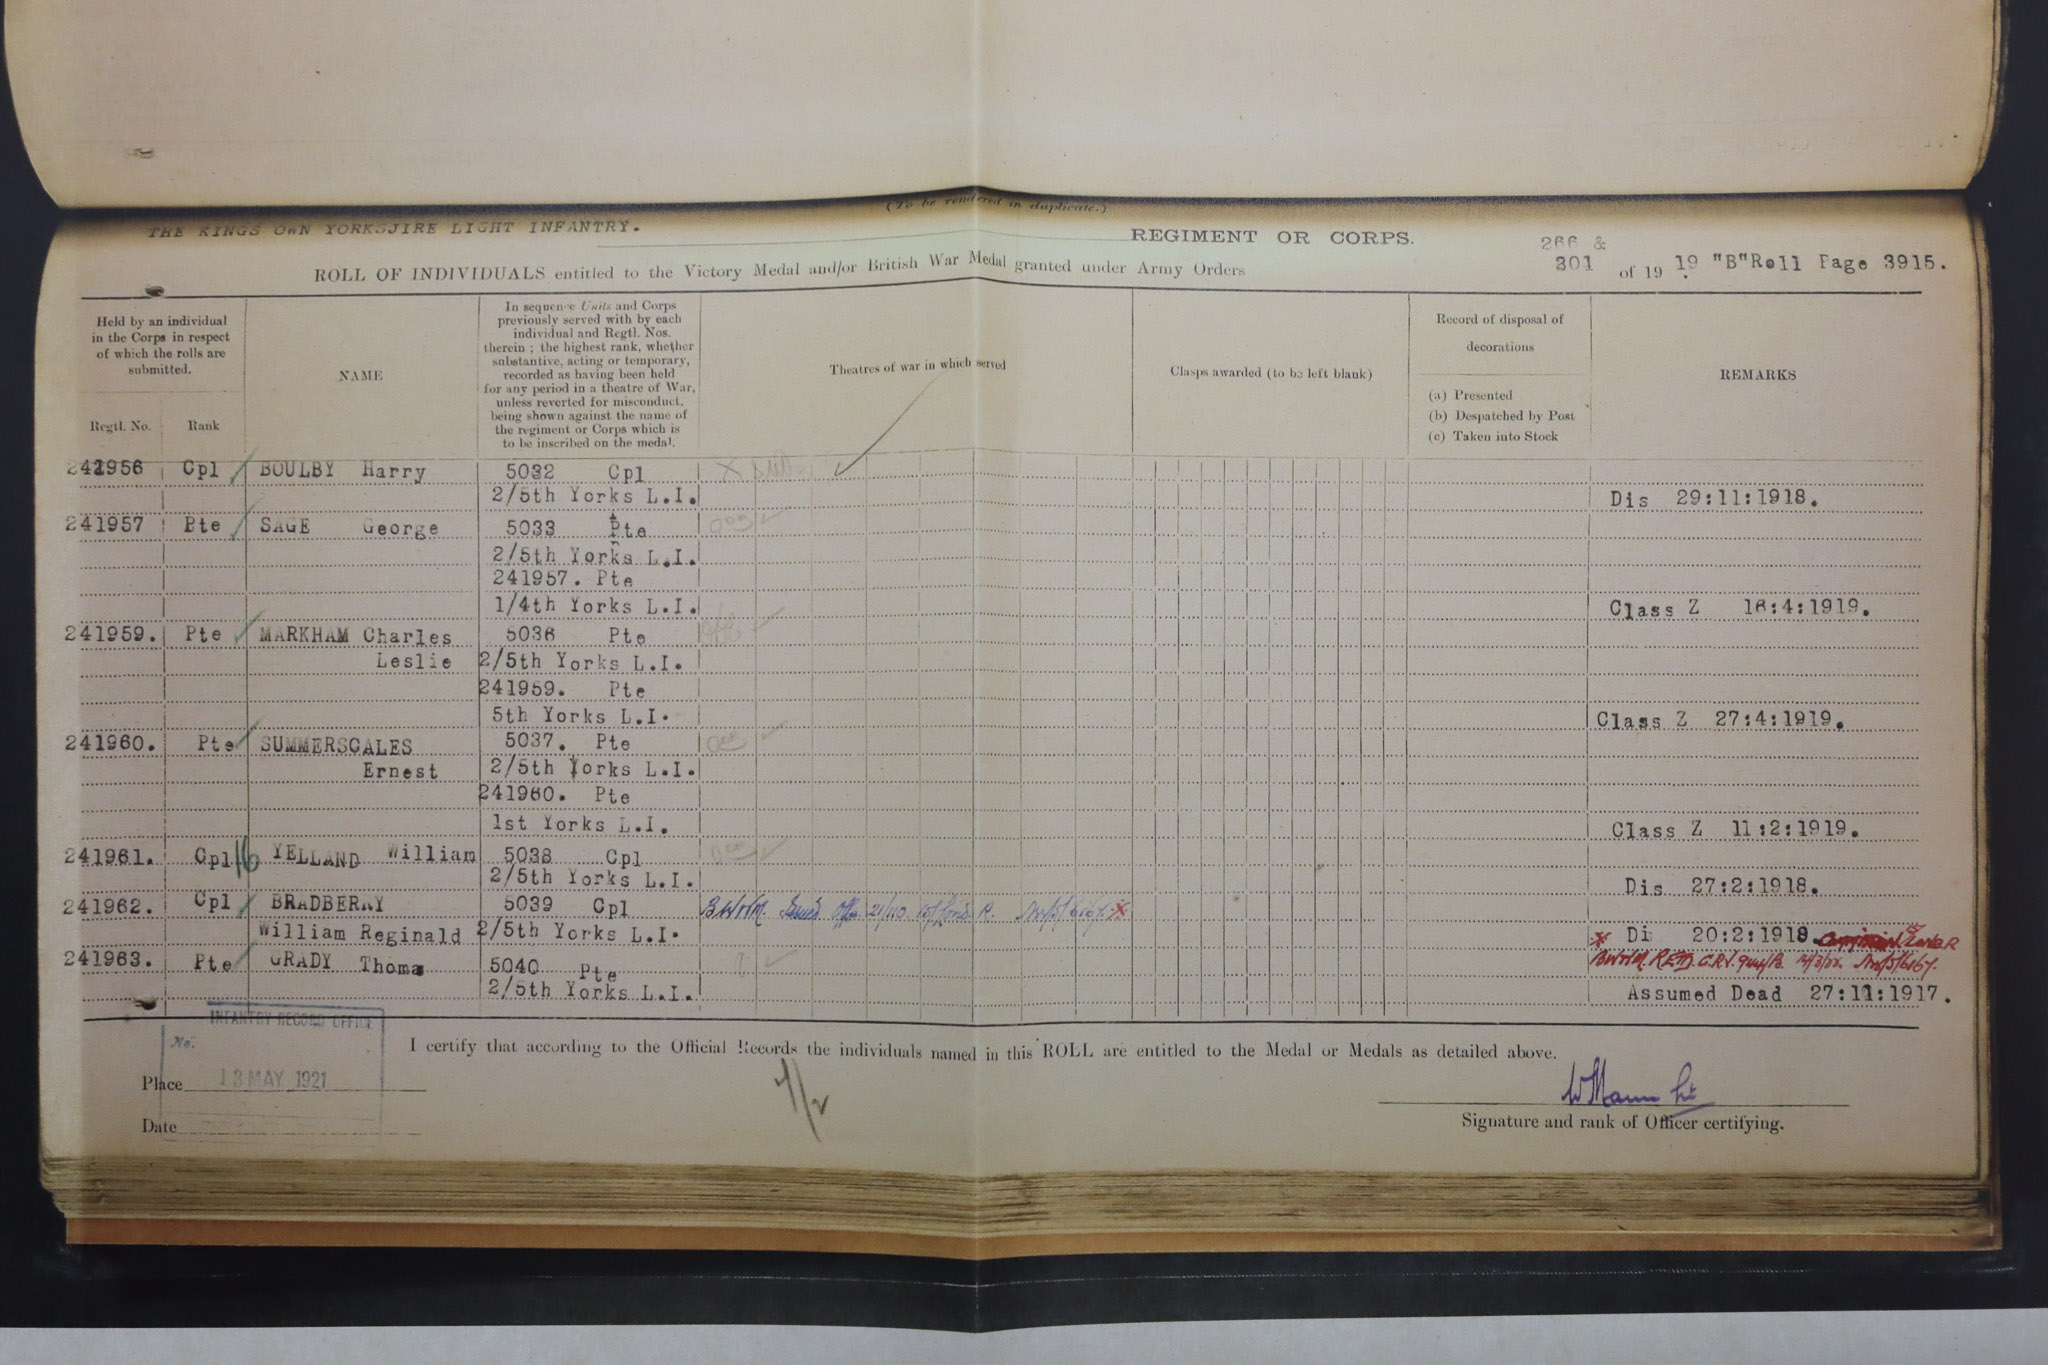 (To be rendered in duplicate.)
THE KINGS OWN YORKSJIRE LIGHT INFANTRY. REGIMENT OR CORPS.
ROLL OF INDIVIDUALS entitled to the Victory Medal and/or British War Medal granted under Army Orders 266 & 301 of 19 19. "B"Roll Page 3915.
Held by an individual in the Corps in respect of which the rolls are submitted.
Regtl. No.
Rank
NAME
In sequence Units and Corps
previously served with by each
individual and Regtl. Nos.
therein ; the highest rank, whether
substantive, acting or temporary,
recorded as having been held
for any period in a theatre of War,
unless reverted for misconduct,
being shown against the name of
the regiment or Corps which is
to be inscribed on the medal.
Theatres of war in which served
Clasps awarded (to be left blank)
Record of disposal of
decorations
(a) Presented
(b) Despatched by Post
(c) Taken into Stock
REMARKS
241956 Cpl BOULBY Harry 5032 Cpl
2/5th Yorks L.I. Dis 29:11:1918.
241957 Pte SAGE George 5033 Pte
2/5th Yorks L.I.
241957. Pte
1/4th Yorks L.I. Class Z 16:4:1919.
241959. Pte MARKHAM Charles 5036 Pte
Leslie 2/5th Yorks L.I.
241959. Pte
5th Yorks L.I. Class Z 27:4:1919.
241960. Pte SUMMERSCALES 5037. Pte
Ernest 2/5th Yorks L.I.
241960. Pte
1st Yorks L.I. Class Z 11:2:1919.
241961. Cpl YELLAND William 5038 Cpl
2/5th Yorks L.I. Dis 27:2:1918.
241962. Cpl BRADBERRY 5039 Cpl B.W.M. Issued
William Reginald 2/5th Yorks L.I. Di 20:2:1918
241963. Pte GRADY Thomas 5040 Pte
2/5th Yorks L.I. Assumed Dead 27:11:1917.
I certify that according to the Official Records the individuals named in this ROLL are entitled to the Medal or Medals as detailed above.
INFANTRY RECORD OFFICE
No.
Place 13 MAY 1921
Date
Signature and rank of Officer certifying.